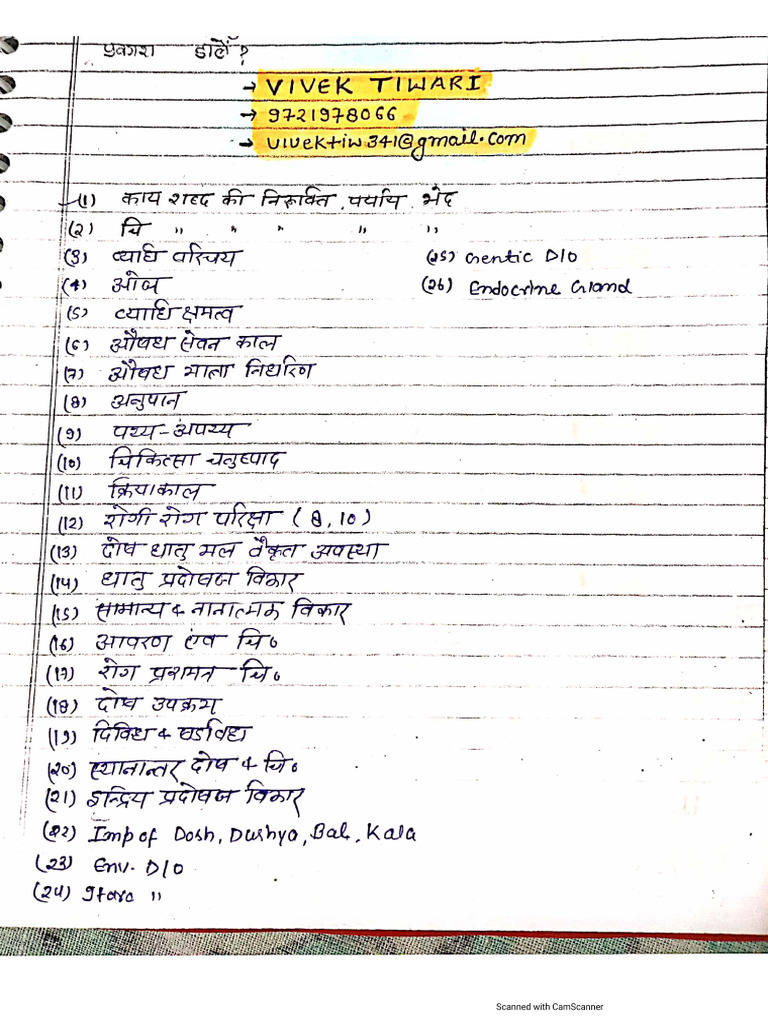 प्रकाश डालें?
→ VIVEK TIWARI
→ 9721978066
→ vivektiw341@gmail.com
(1) काय शब्द की निरूक्ति, पर्याय, भेद
(2) चि " " " " "
(3) व्याधि परिचय
(25) Genetic D/O
(4) ओज
(26) Endocrine Gland
(5) व्याधि क्षमत्व
(6) औषध सेवन काल
(7) औषध मात्रा निर्धारण
(8) अनुपान
(9) पथ्य-अपथ्य
(10) चिकित्सा चतुष्पाद
(11) क्रियाकाल
(12) रोगी रोग परिक्षा (8,10)
(13) दोष धातु मल वैकृत अवस्था
(14) धातु प्रदोषज विकार
(15) सामान्य & नानात्मक विकार
(16) आवरण एंव चि०
(17) रोग प्रशमन चि०
(18) दोष उपक्रम
(19) द्विविध & षडविध
(20) स्थानान्तर दोष & चि०
(21) इन्द्रिय प्रदोषज विकार
(22) Imp of Dosh, Dushya, Bal, Kala
(23) Env. D/O
(24) "
Scanned with CamScanner